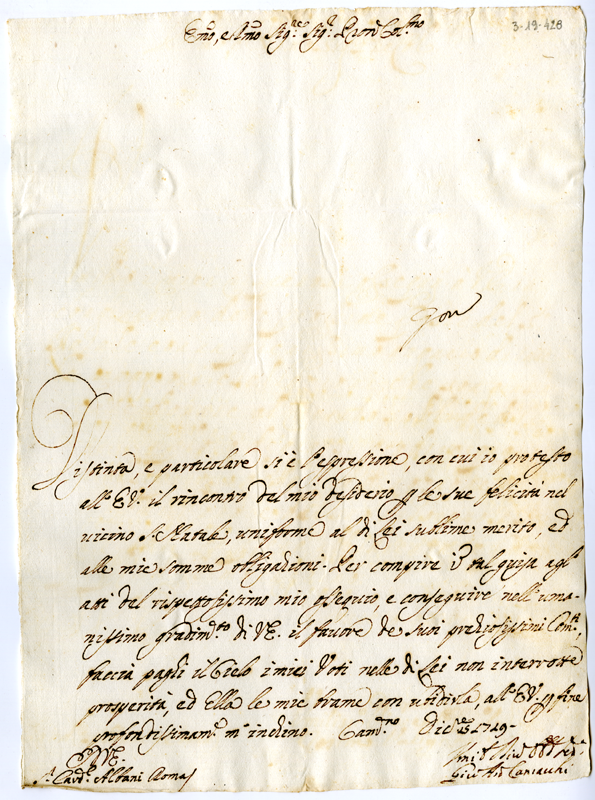 Em̃o, e Rm̃o Sig.re Sig.r Pron Col.mo
3-19-428
Distinta, e particolare si è l'espressione, con cui io protesto
all'E.V. il rincontro del mio desiderio p le sue felicità nel
vicino S. Natale, uniforme al di Lei sublime merito, ed
alle mie somme obligazioni. Per compire in tal guisa agl'
atti del rispettosissimo mio ossequio, e conseguire nell'uma-
nissimo gradim.to di V.E. il favore de Suoi preziosissimi Com.ti
faccia paghi il Cielo i miei Voti nelle di Lei non interrotte
prosperità, ed Ella le mie brame con ubidirla, all'E.V. p fine
profondissimam.e m'inchino. Dic.re 1749
E.V.
S.r Card.l Albani Roma